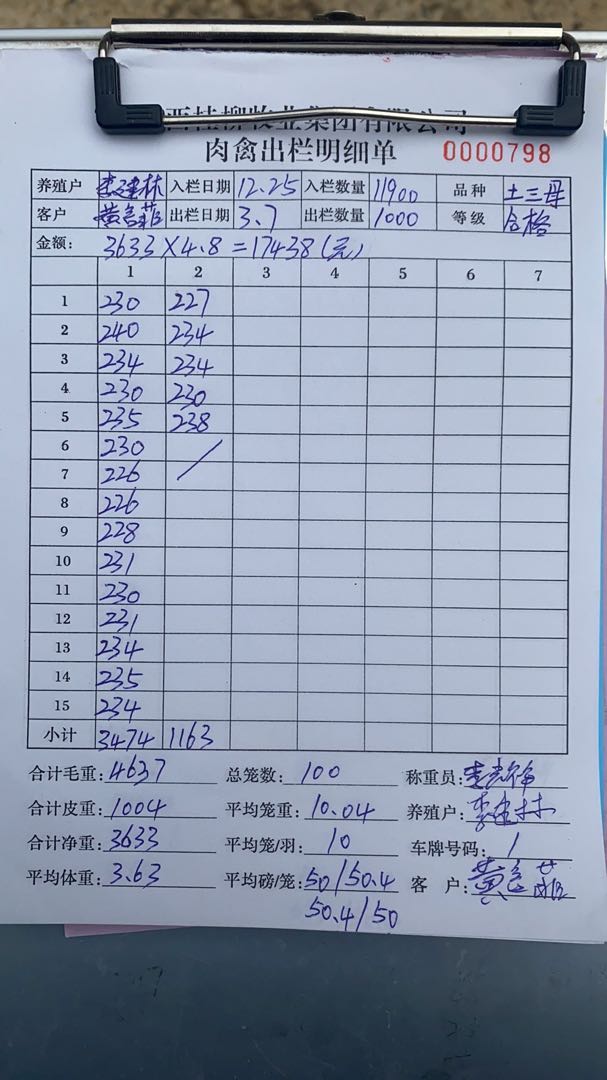 西桂柳牧业集团有限公司
肉禽出栏明细单 0000798
养殖户 李建林 入栏日期 12.25 入栏数量 11900 品种 土三母
客户 出栏日期 3.7 出栏数量 1000 等级 合格
金额: 3633×4.8=17438(元)
1 2 3 4 5 6 7
1 230 227
2 240 234
3 234 234
4 230 230
5 235 238
6 230
7 226
8 226
9 228
10 231
11 230
12 231
13 234
14 235
15 234
小计 3474 1163
合计毛重: 4637 总笼数: 100 称重员:
合计皮重: 1004 平均笼重: 10.04 养殖户: 李建林
合计净重: 3633 平均笼/羽: 10 车牌号码: 1
平均体重: 3.63 平均磅/笼: 50/50.4 客 户: 黄
50.4/50